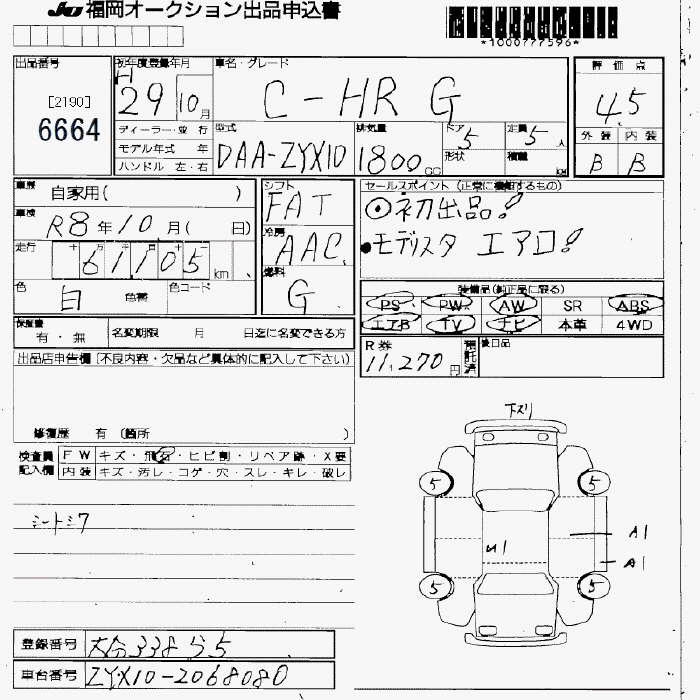 JU 福岡オークション出品申込書
*1000777596*
出品番号
[2190]
6664
初年度登録年月
H 29 10月
車名・グレード
C-HR G
評価点
4.5
外装 内装
B B
ディーラー・並行
モデル年式 年
ハンドル 左・右
型式
DAA-ZYX10
排気量
1800cc
ドア 5
形状
定員 5人
積載 km
車歴 自家用( )
車検 R8年10月( 日)
走行 十 万 千 百 十
61105 km
色 白 色替
色コード
シフト FAT
冷房 AAC
燃料 G
セールスポイント (正常に機能するもの)
◎初出品!
●モデリスタ エアロ!
装備品(純正品に限る)
PS PW AW SR ABS
エアB TV ナビ 本革 4WD
保証書 有・無
名変期限 月 日迄に名変できる方
R券 11,270円
預託済
後日品
出品店申告欄 (不良内容・欠品など具体的に記入して下さい)
修復歴 有 (箇所 )
検査員記入欄
FW キズ・飛石・ヒビ割・リペア跡・X要
内装 キズ・汚レ・コゲ・穴・スレ・キレ・破レ
シートシワ
下ズリ
5 5
A1
A1
5 5
登録番号
車台番号 ZYX10-2068080